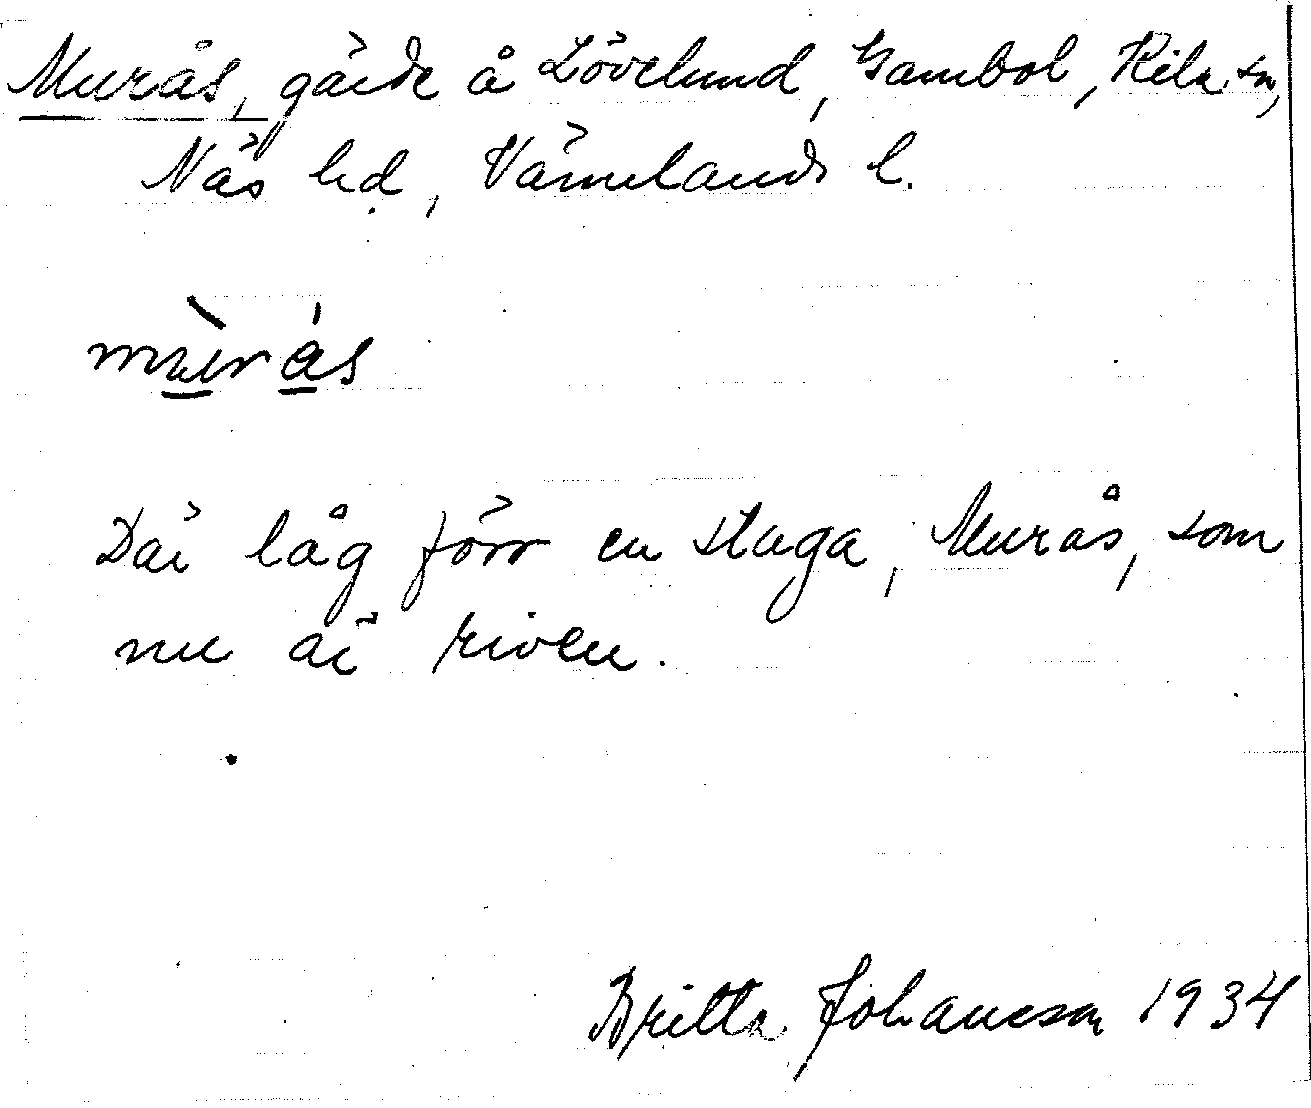 Murås, gärde å Lövelund, Gambol, Kila sn,
Näs hd, Värmlands l.
mùrás
Där låg förr en stuga, Murås, som
nu är riven.
Britta Johansson 1934